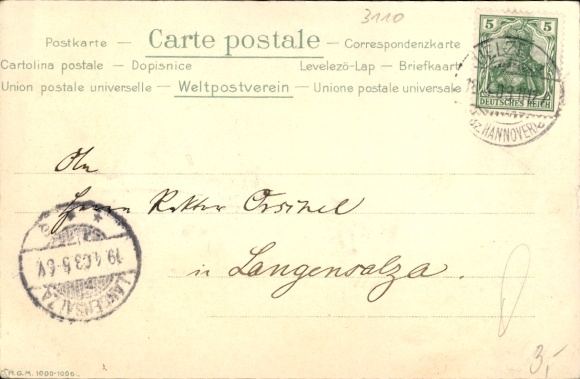 3110
Postkarte — Carte postale — Correspondenzkarte
Cartolina postale — Dopisnice Levelezö-Lap — Briefkaart
Union postale universelle — Weltpostverein — Unione postale universale
5 5
DEUTSCHES REICH
UELZEN
(BZ. HANNOVER)
An
Herrn Rektor
in Langensalza.
19.1.03.5-6N.
LANGENSALZA
3,-
M.G.M. 1000-1006.